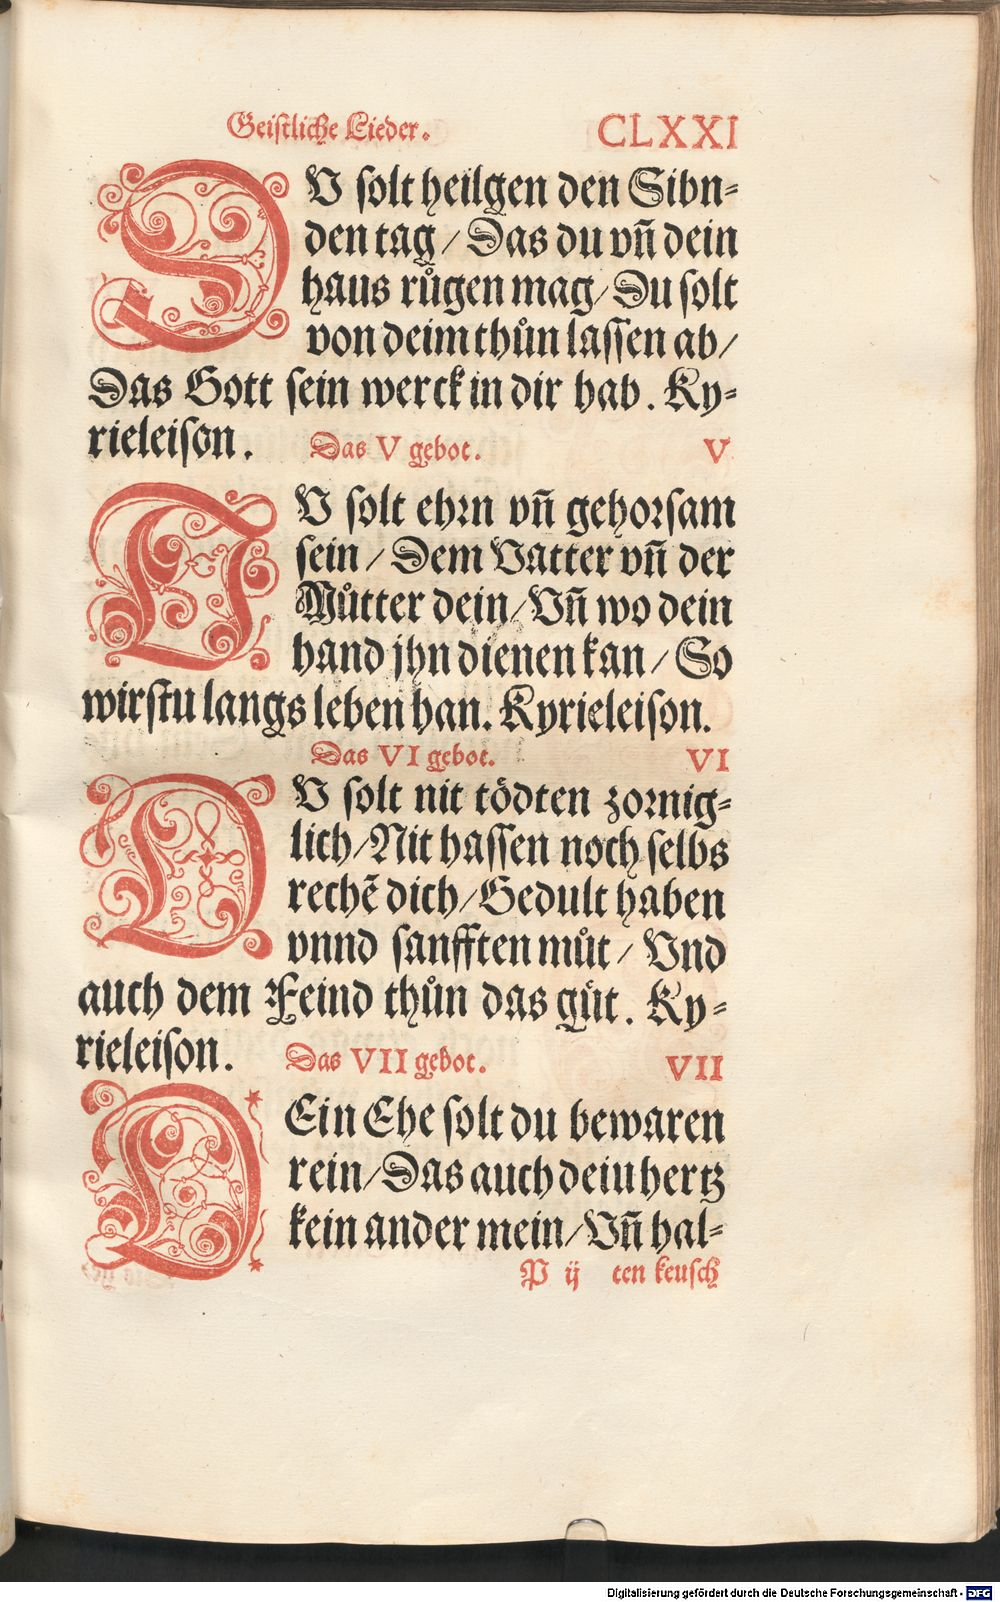 Geistliche Lieder. CLXXI
DV solt heilgen den Sibn-
den tag / Das du vñ dein
haus růgen mag / Du solt
von deim thůn lassen ab /
Das Gott sein werck in dir hab. Ky-
rieleison. Das V gebot. V
DV solt ehrn vñ gehorsam
sein / Dem Vatter vñ der
Můtter dein / Vñ wo dein
hand jhn dienen kan / So
wirstu langs leben han. Kyrieleison.
Das VI gebot. VI
DV solt nit tödten zornig-
lich / Nit hassen noch selbs
rechẽ dich / Gedult haben
vnnd sanfften můt / Vnd
auch dem Feind thůn das gůt. Ky-
rieleison. Das VII gebot. VII
DEin Ehe solt du bewaren
rein / Das auch deiu hertz
kein ander mein / Vñ hal-
P ij ten keusch
Digitalisierung gefördert durch die Deutsche Forschungsgemeinschaft - DFG